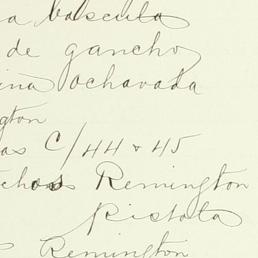 a bascula
de gancho
ina ochavada
gton
as C/44 & 45
chos Remington
Pistola
Remington